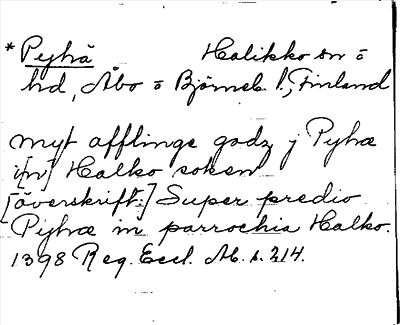 * Pyhä Halikko sn o
hd, Åbo o Björneb. l., Finland
myt afflinge godz j Pyhæ
i[n] Halko soken
[överskrift:] Super predio
Pyhæ in parrochia Halko.
1398 Reg. Eccl. Ab. s. 214.